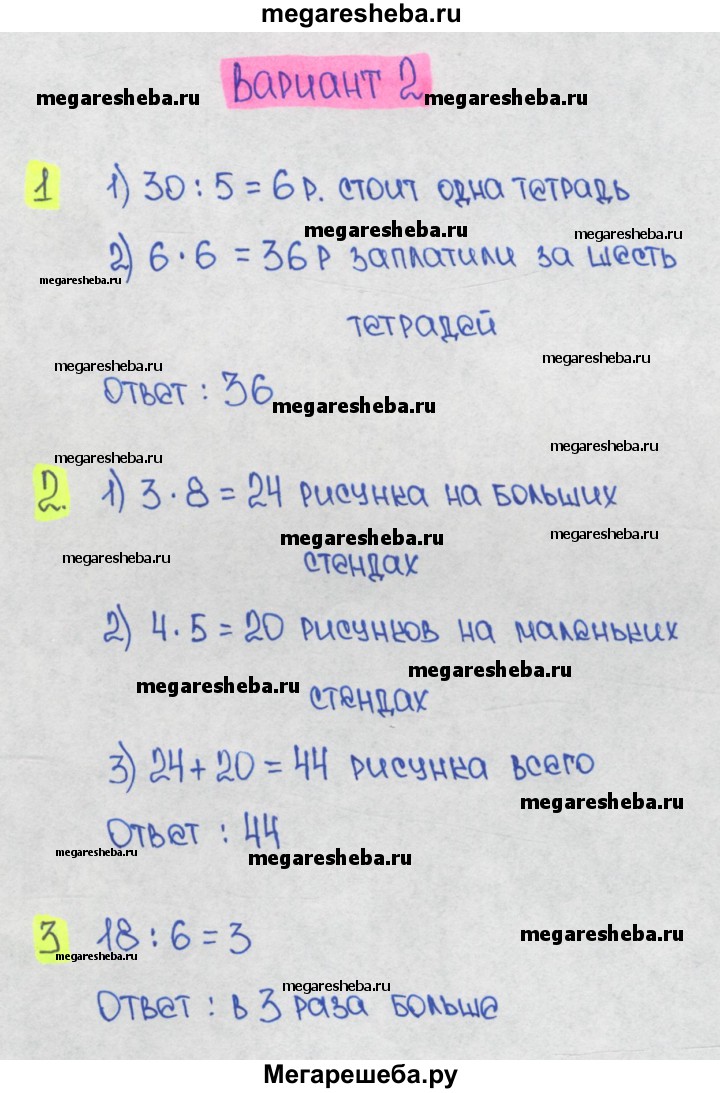 megaresheba.ru
Вариант 2
megaresheba.ru megaresheba.ru
1 1) 30 : 5 = 6 р. стоит одна тетрадь
megaresheba.ru megaresheba.ru
2) 6 · 6 = 36 р заплатили за шесть
megaresheba.ru
тетрадей
megaresheba.ru megaresheba.ru
Ответ : 36
megaresheba.ru
megaresheba.ru
megaresheba.ru
2. 1) 3 · 8 = 24 рисунка на больших
megaresheba.ru megaresheba.ru
megaresheba.ru
стендах
2) 4 · 5 = 20 рисунков на маленьких
megaresheba.ru
megaresheba.ru
стендах
3) 24 + 20 = 44 рисунка всего
megaresheba.ru
Ответ : 44
megaresheba.ru
megaresheba.ru
3 18 : 6 = 3
megaresheba.ru
megaresheba.ru
megaresheba.ru
Ответ : в 3 раза больше
Мегарешеба.ру